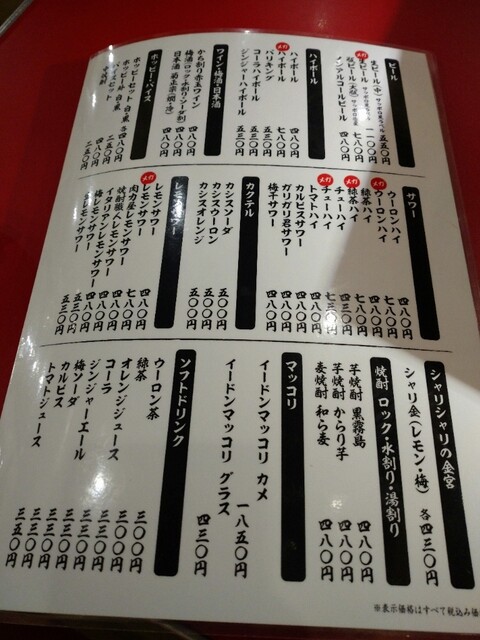 ビール
生ビール(中) サッポロ黒ラベル 五五〇円
メガ 生ビール サッポロ黒ラベル 一一〇〇円
瓶ビール(大瓶) サッポロ 七八〇円
ノンアルコールビール 四八〇円
ハイボール
ハイボール 四八〇円
メガ ハイボール 七八〇円
コーラハイボール 五三〇円
バリキング 五三〇円
ジンジャーハイボール 五三〇円
ワイン・梅酒・日本酒
かち割り赤玉ワイン 四八〇円
梅酒(ロック・水割り・ソーダ割) 四八〇円
日本酒 菊正宗(燗・冷) 四八〇円
ホッピー・バイス
ホッピーセット 白・黒 各四八〇円
ホッピー外 白・黒 二五〇円
バイスセット 四八〇円
二五〇円
サワー
ウーロンハイ 四八〇円
メガ ウーロンハイ 七八〇円
緑茶ハイ 四八〇円
メガ 緑茶ハイ 七八〇円
チューハイ 四三〇円
メガ チューハイ 七三〇円
トマトハイ 四八〇円
カルピスサワー 四八〇円
ガリガリ君サワー 四八〇円
梅干サワー 四八〇円
カクテル
カシスソーダ 五〇〇円
カシスウーロン 五〇〇円
カシスオレンジ 五〇〇円
レモンサワー
レモンサワー 四八〇円
メガ レモンサワー 七八〇円
肉力屋レモンサワー 四八〇円
焼酎職人レモンサワー 四八〇円
イタリアンレモンサワー 五三〇円
梅レモンサワー 五三〇円
レモンサワー 五三〇円
シャリシャリの金宮
シャリ金(レモン・梅) 各四三〇円
焼酎 ロック・水割り・湯割り
芋焼酎 黒霧島 四八〇円
芋焼酎 からり芋 四八〇円
麦焼酎 和ら麦 四八〇円
マッコリ
イードンマッコリ カメ 一八五〇円
イードンマッコリ グラス 四三〇円
ソフトドリンク
ウーロン茶 三〇〇円
緑茶 三〇〇円
オレンジジュース 三〇〇円
コーラ 三〇〇円
ジンジャーエール 三〇〇円
梅ソーダ 三五〇円
カルピス 三五〇円
トマトジュース 三五〇円
※表示価格はすべて税込み価